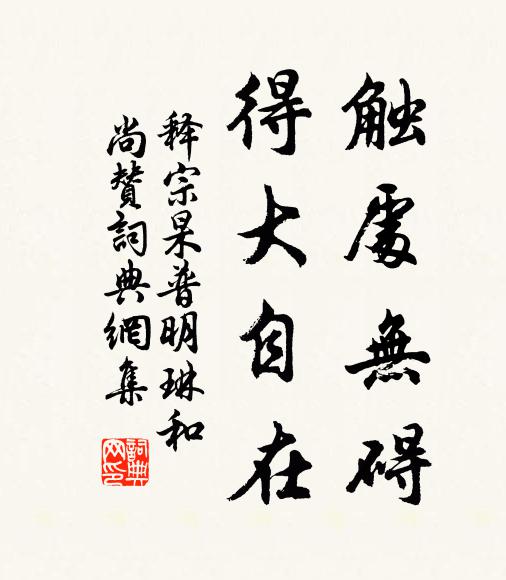 触處無碍
得大自在
释宗杲普明琳和
尚赞詞典網集
詞典网印